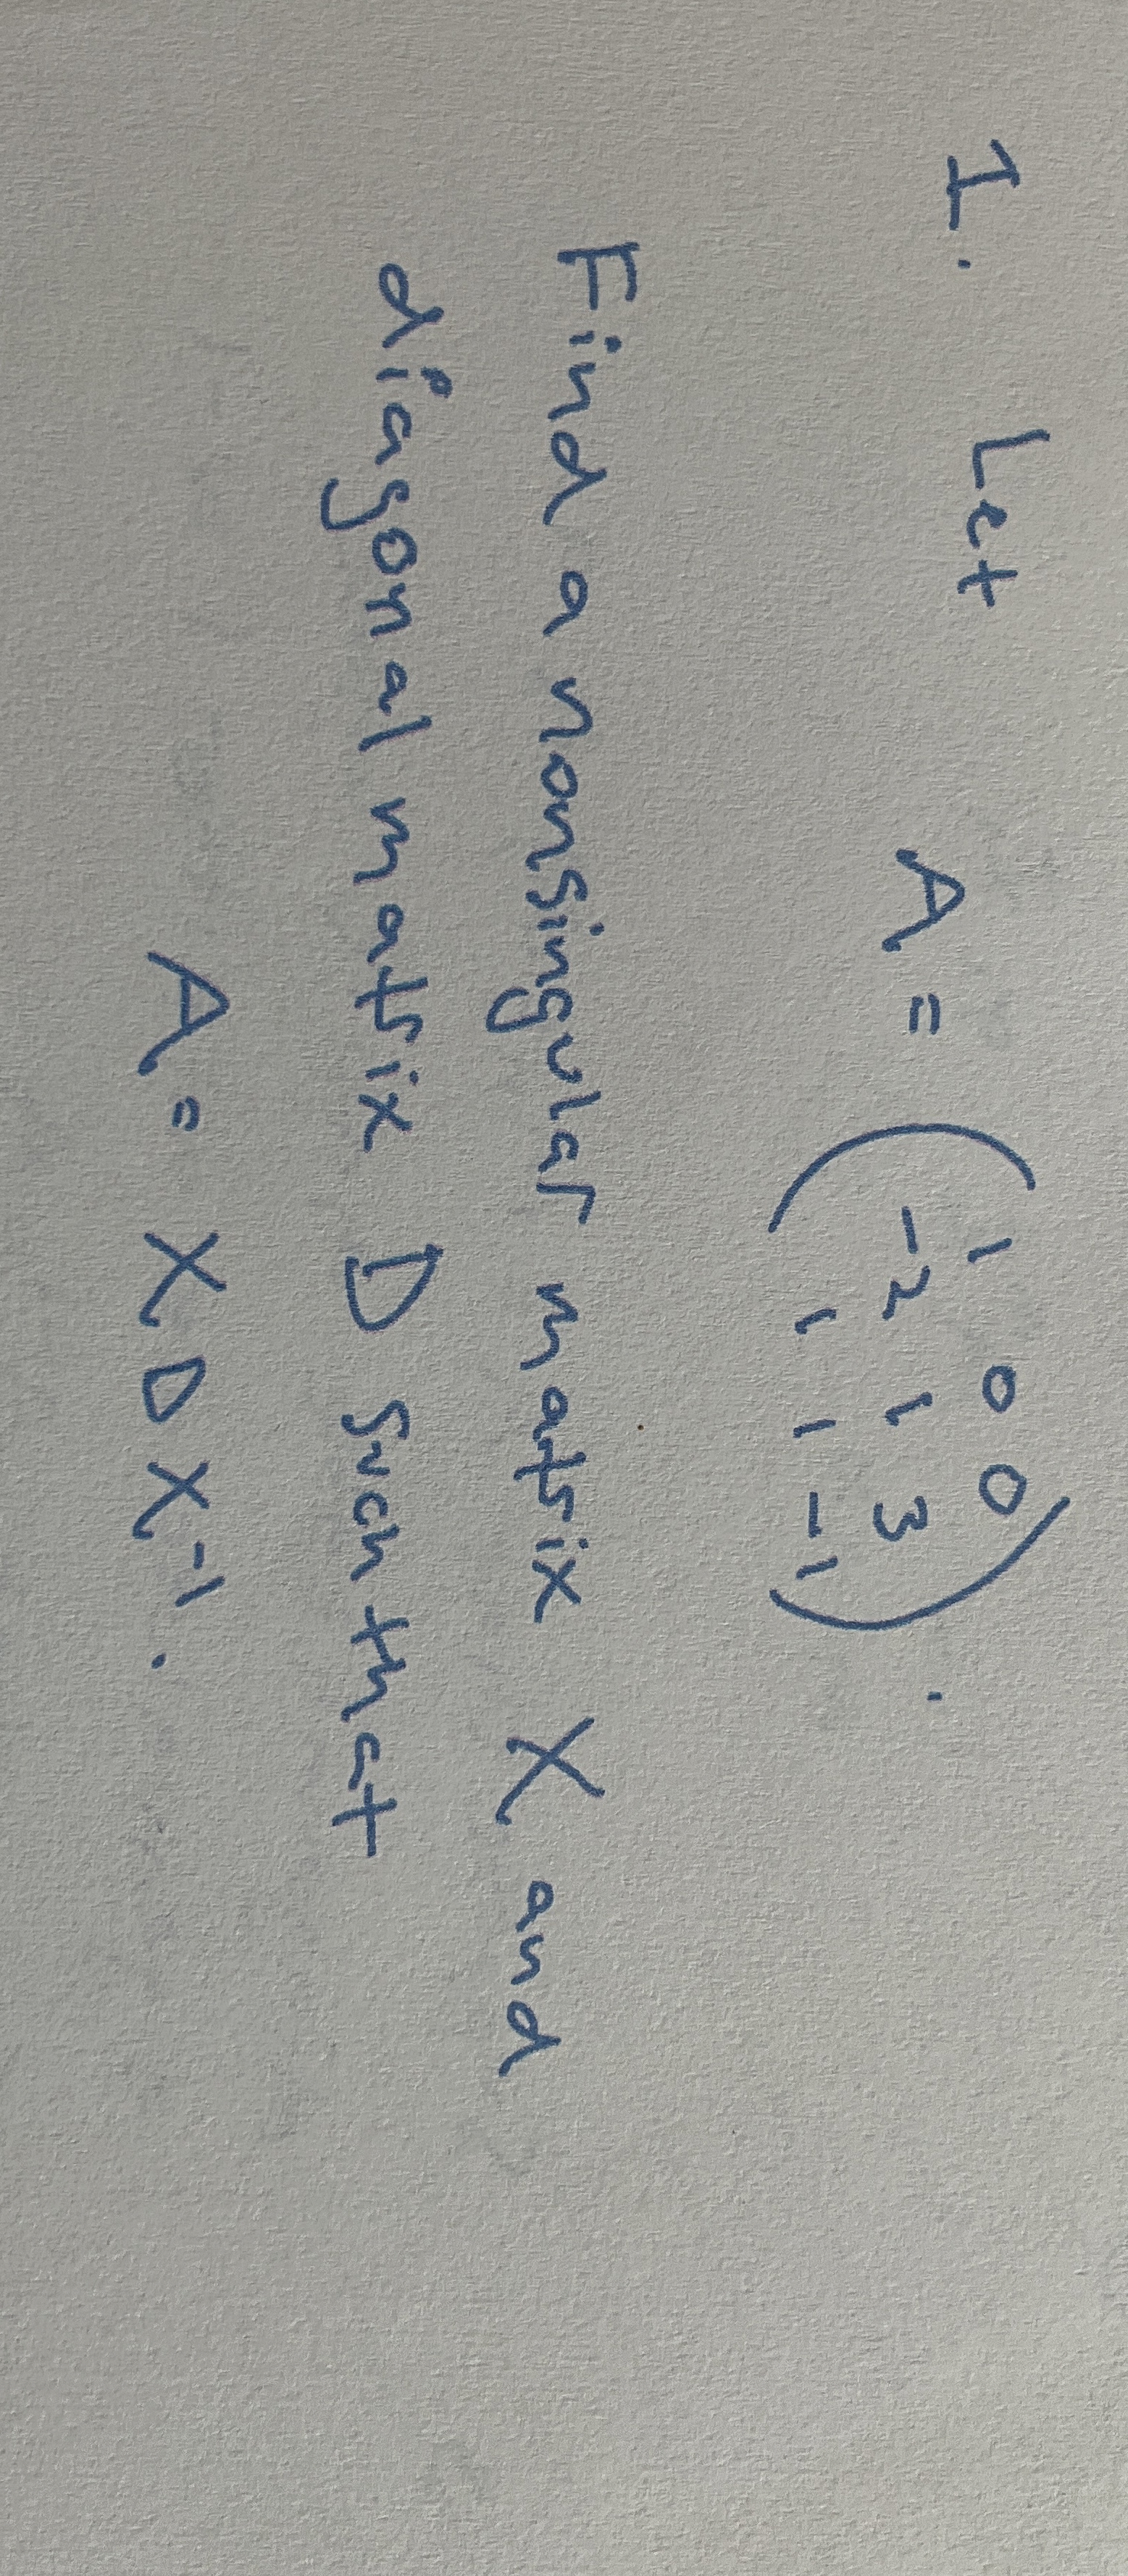 1. Let A = ( 1 0 0
-2 1 3
1 1 -1 ) .
Find a nonsingular matrix X and
diagonal matrix D such that
A = X D X⁻¹ .